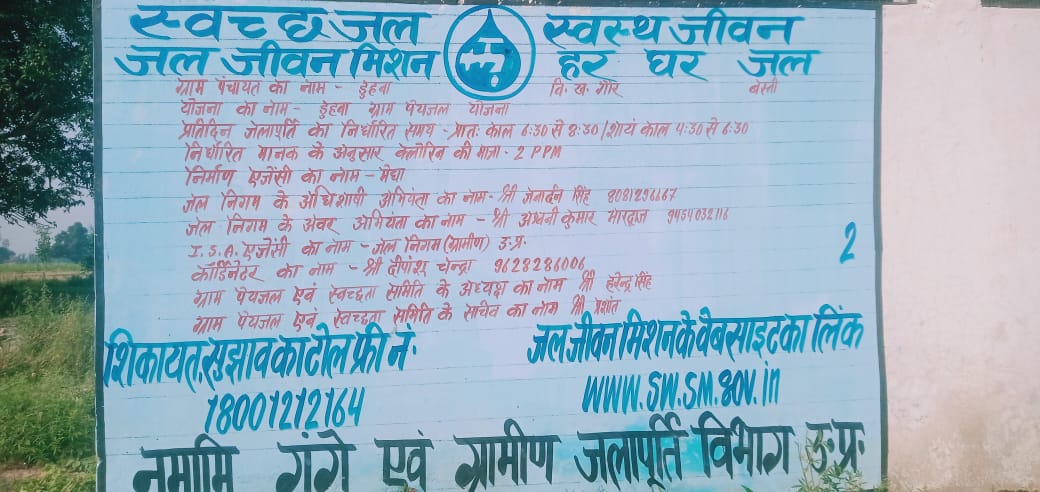 स्वच्छ जल स्वस्थ जीवन
जल जीवन मिशन हर घर जल
ग्राम पंचायत का नाम - डुहवा वि. ख. गौर बस्ती
योजना का नाम - डुहवा ग्राम पेयजल योजना
प्रतिदिन जलापूर्ति का निर्धारित समय - प्रातः काल 6:30 से 8:30 / शायं काल 4:30 से 6:30
निर्धारित मानक के अनुसार क्लोरिन की मात्रा - 2 PPM
निर्माण एजेंसी का नाम - मेघा
जल निगम के अधिशाषी अभियंता का नाम - श्री जनार्दन सिंह 8081296667
जल निगम के अवर अभियंता का नाम - श्री अश्वनी कुमार भारद्वाज 9454032116
I.S.A. एजेंसी का नाम - जल निगम (ग्रामीण) उ.प्र.
कॉर्डिनेटर का नाम - श्री दीपांशू चन्द्रा 9628286006
ग्राम पेयजल एवं स्वच्छता समिति के अध्यक्ष का नाम श्री हरेन्द्र सिंह
ग्राम पेयजल एवं स्वच्छता समिति के सचिव का नाम श्री प्रशांत
2
शिकायत, सुझाव का टोल फ्री नं.
18001212164
जल जीवन मिशन के वेबसाइट का लिंक
WWW.SW.SM.GOV.in
नमामि गंगे एवं ग्रामीण जलापूर्ति विभाग उ.प्र.